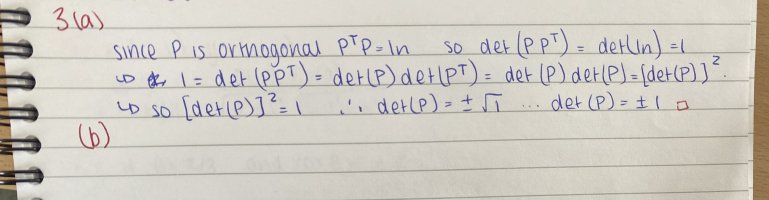 3(a)
since P is orthogonal PᵀP=In so det(PPᵀ) = det(In) =1
↳ 1= det(PPᵀ) = det(P)det(Pᵀ) = det(P)det(P)=[det(P)]².
↳ so [det(P)]²=1 ∴ det(P)= ±√1 ... det(P)= ±1 □
(b)